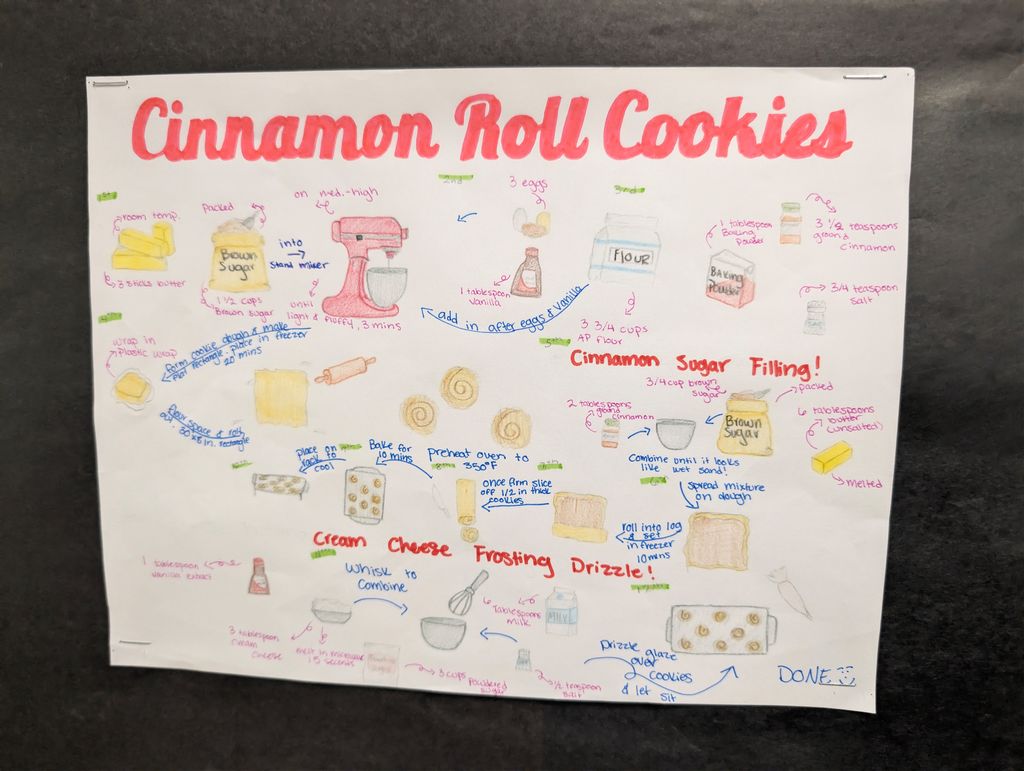 Cinnamon Roll Cookies
1st
room temp.
3 sticks butter
packed
Brown
Sugar
1 1/2 cups
Brown sugar
into
stand mixer
on med.-high
until
light & fluffy, 3 mins
2nd
3 eggs
1 tablespoon
Vanilla
add in after eggs & vanilla
3rd
FLOUR
3 3/4 cups
AP flour
1 tablespoon
Baking
powder
BAKING
POWDER
3 1/2 teaspoons
ground
cinnamon
3/4 teaspoon
salt
4th
wrap in
plastic wrap
form cookie dough & make
flat rectangle. place in freezer
20 mins
flour space & roll
rectangle
5th
Cinnamon Sugar Filling!
2 tablespoons
ground
cinnamon
3/4 cup brown
sugar
packed
Brown
Sugar
6 tablespoons
butter
(unsalted)
melted
Combine until it looks
like wet sand!
spread mixture
on dough
roll into log
& set
in freezer
10 mins
once firm slice
off 1/2 in thick
cookies
Preheat oven to
350°F
Bake for
10 mins
place on
rack to
cool
Cream Cheese Frosting Drizzle!
1 tablespoon
vanilla extract
Whisk to
Combine
3 tablespoon
cream
cheese
melt in microwave
15 seconds
3 cups powdered
sugar
6
Tablespoons
milk
MILK
1/2 teaspoon
salt
Drizzle glaze
over
cookies
& let sit
DONE